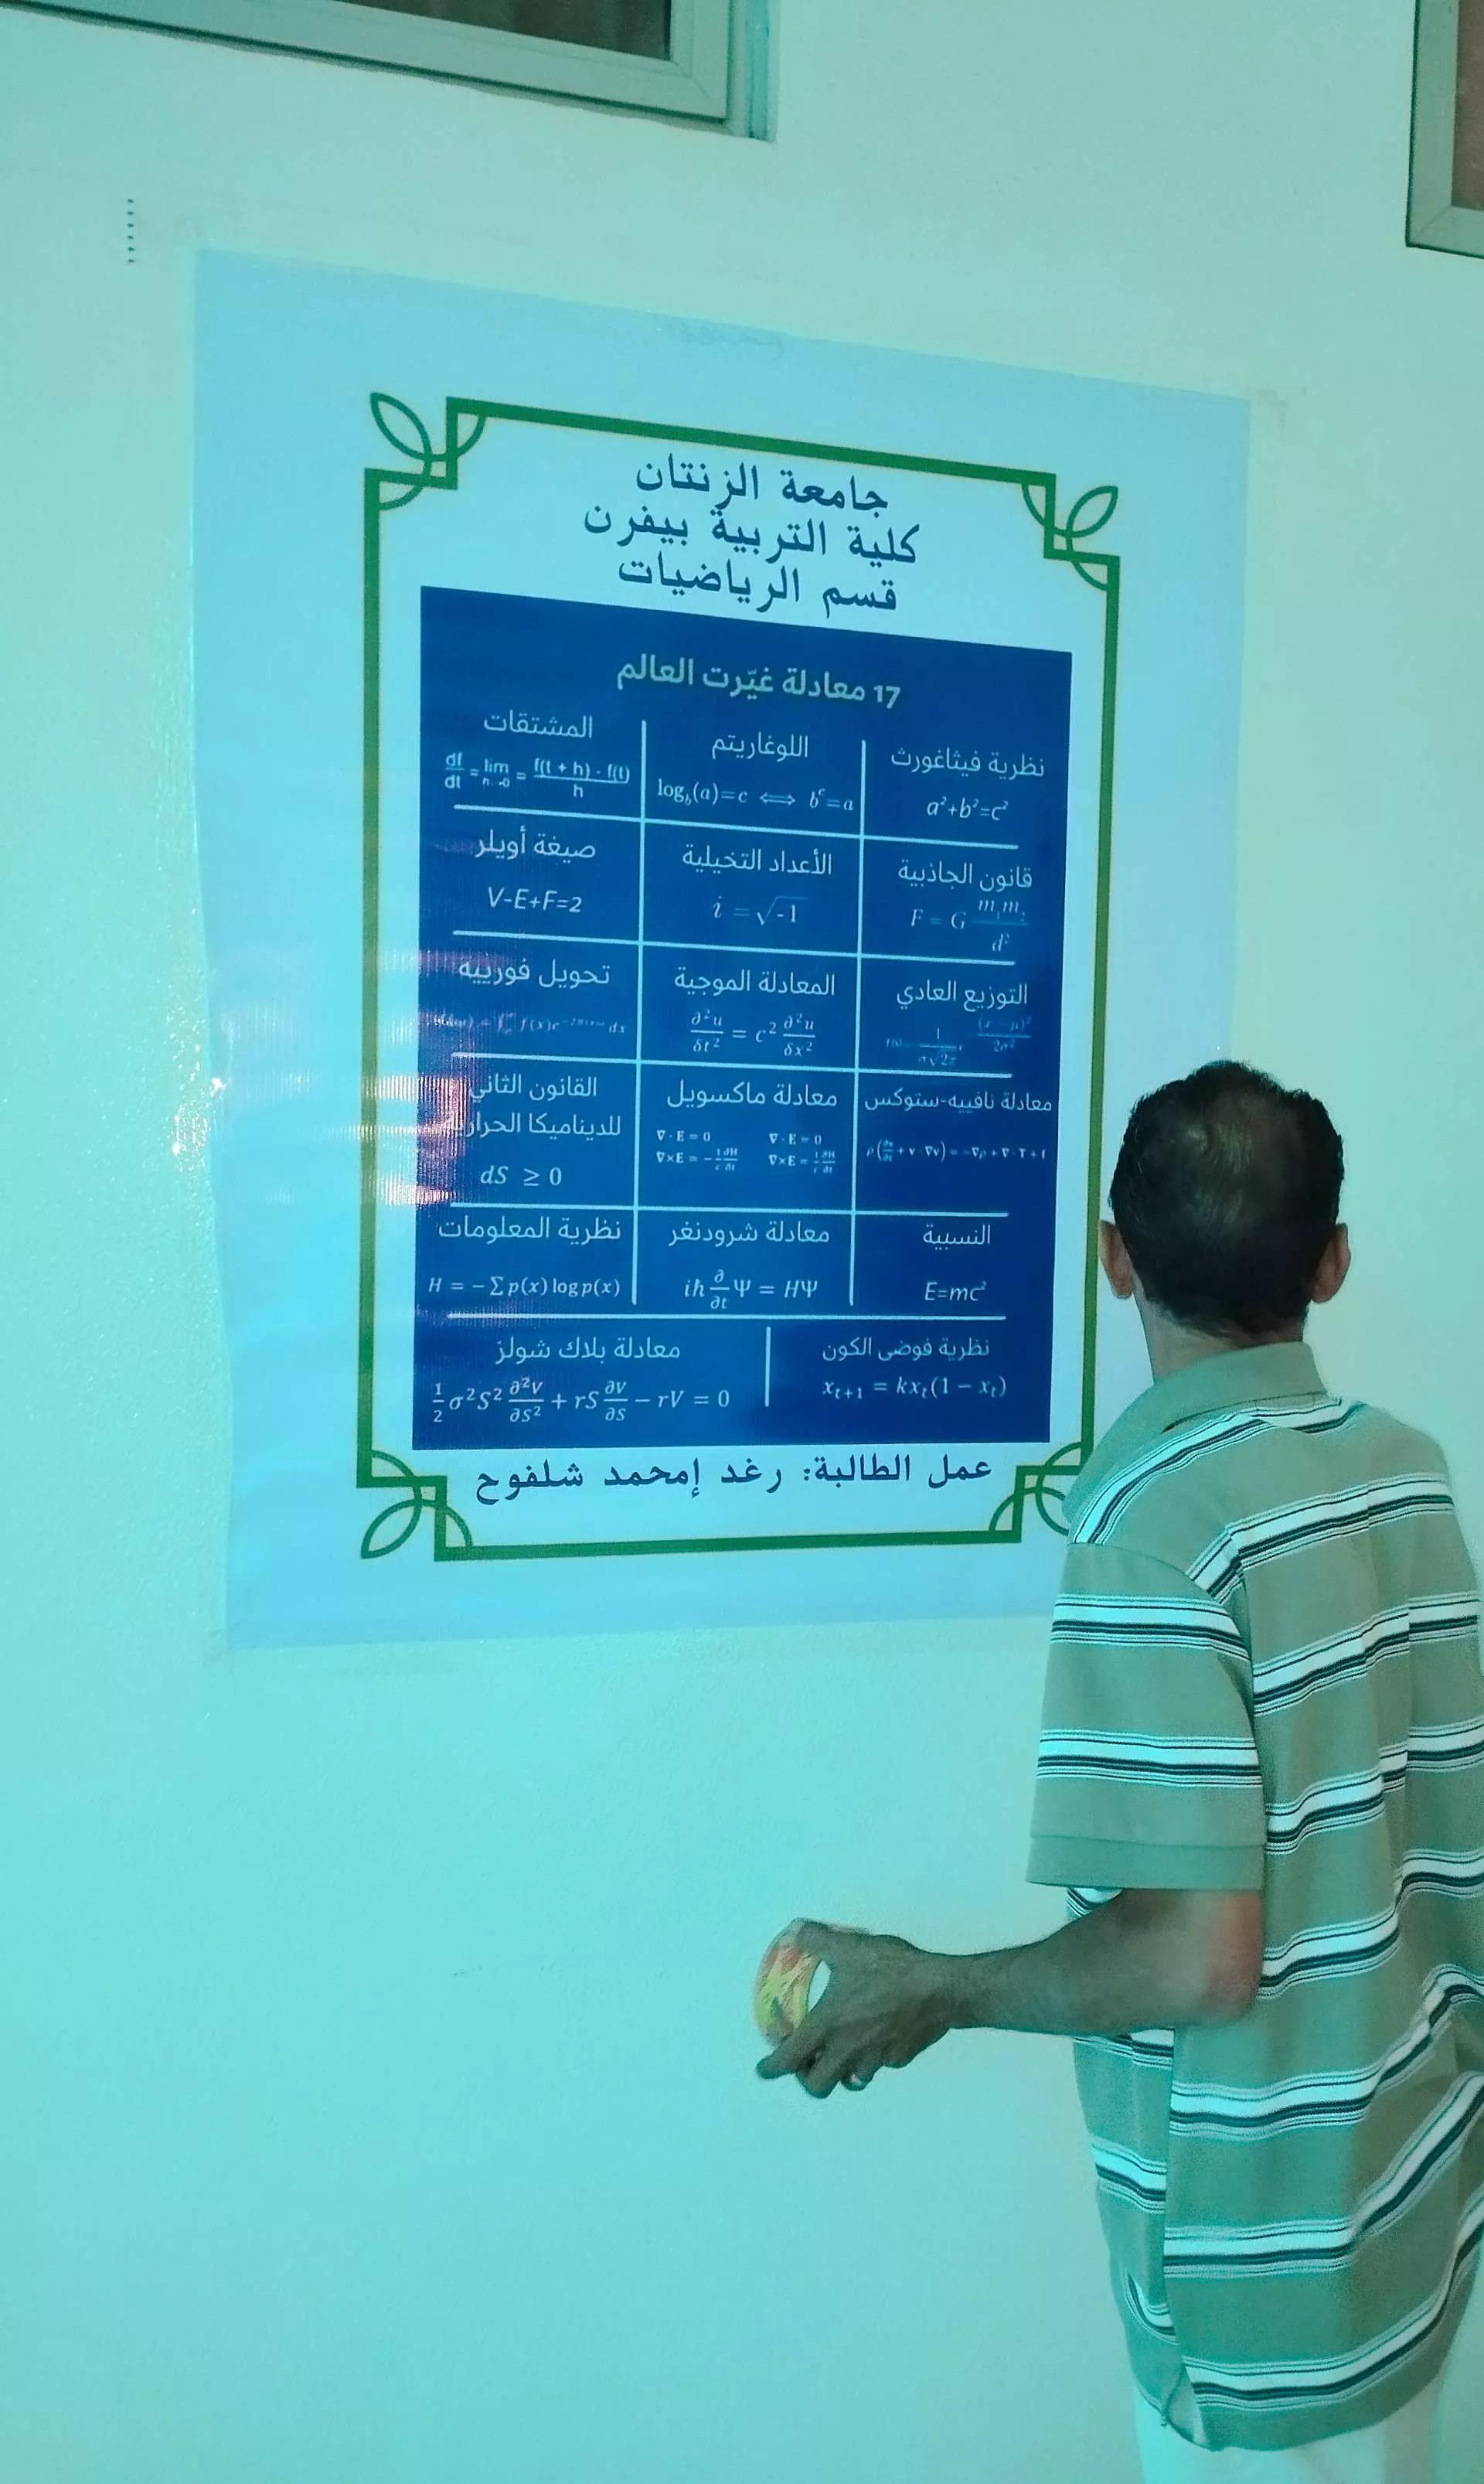 جامعة الزنتان
كلية التربية بيفرن
قسم الرياضيات
17 معادلة غيّرت العالم
نظرية فيثاغورث
a²+b²=c²
اللوغاريتم
log_b(a)=c ⟺ b^c=a
المشتقات
df/dt = lim h→0 = f(t + h) - f(t) / h
قانون الجاذبية
F = G m₁m₂ / d²
الأعداد التخيلية
i = √-1
صيغة أويلر
V-E+F=2
التوزيع العادي
1 / σ√2π (x - μ)² / 2σ²
المعادلة الموجية
∂²u/δt² = c² ∂²u/δx²
تحويل فورييه
f(x)e dx
معادلة نافييه-ستوكس
ρ(∂v/∂t + v · ∇v) = -∇p + ∇ · T + f
معادلة ماكسويل
∇ · E = 0 ∇ · E = 0
∇×E = - 1/c ∂H/∂t ∇×E = 1/c ∂H/∂t
القانون الثاني
للديناميكا الحرارية
dS ≥ 0
النسبية
E=mc²
معادلة شرودنغر
iħ ∂/∂t Ψ = HΨ
نظرية المعلومات
H = − ∑ p(x) log p(x)
نظرية فوضى الكون
x_{t+1} = kx_t(1 − x_t)
معادلة بلاك شولز
1/2 σ²S² ∂²V/∂S² + rS ∂V/∂S − rV = 0
عمل الطالبة: رغد إمحمد شلفوح